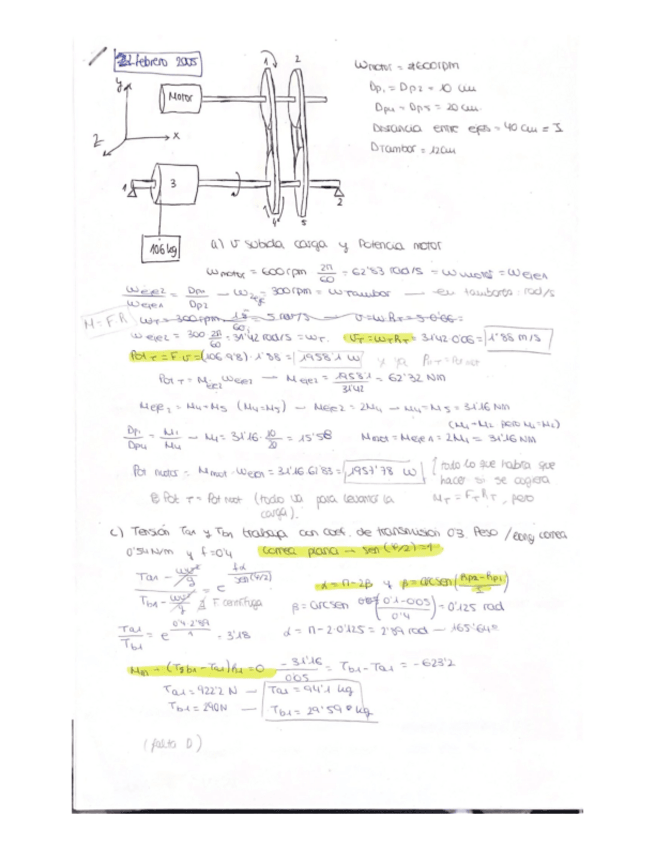 21 febrero 2005
ω motor = 600 rpm
Dp1 = Dp2 = 10 cm
Dp4 = Dp5 = 20 cm
Distancia entre ejes = 40 cm = I
D tambor = 12 cm
Motor
1
2
y
x
z
1
3
4
5
2
106 kg
a) v subida carga y Potencia motor
ω motor = 600 rpm 2π/60 = 62'83 rad/s = ω motor = ω eje1
ω eje2 / ω eje1 = Dp1 / Dp2 – ω2 eje 300 rpm = ω tambor – en tambor: rad/s
M = F·R
ω eje2 = 300 2π/60 = 31'42 rad/s = ωT. VT = ωT RT = 31'42·0'06 = 1'88 m/s
Pot T = F·v = (106·9'8)·1'88 = 1958'1 W
Pot T = M eje2 ω eje2 – M eje2 = 1958'1 / 31'42 = 62'32 Nm
M eje2 = M4 + M5 (M4 = M5) – M eje2 = 2M4 – M4 = M5 = 31'16 Nm
Dp1 / Dp4 = M1 / M4 – M1 = 31'16 · 10/20 = 15'58 M mot = M eje1 = 2M1 = 31'16 Nm
Pot motor = M mot · ω eje1 = 31'16·62'83 = 1957'78 W
todo lo que habría que hacer si se cogiera
MT = FT RT, pero
Pot T = Pot mot (todo va para levantar la carga).
c) Tensión Ta1 y Tb1 trabaja con coef. de transmisión 0'3. Peso / long correa
0'54 N/m y f = 0'4 correa plana – sen(φ/2) = 1
Ta1 – wv²/g / Tb1 – wv²/g = e^(fα / sen(φ/2))
F. centrífuga
α = π – 2β y β = arcsen (Rp2 – Rp1 / I)
β = arcsen (0'1 – 0'05 / 0'4) = 0'125 rad
Ta1 / Tb1 = e^(0'4·2'89 / 1) = 3'18 α = π – 2·0'125 = 2'89 rad – 165'64º
M1 – (Tb1 – Ta1) R1 = 0 –31'16 / 0'05 = Tb1 – Ta1 = –623'2
Ta1 = 922'2 N – Ta1 = 94'1 kg
Tb1 = 290 N – Tb1 = 29'59 kg
(falta D)